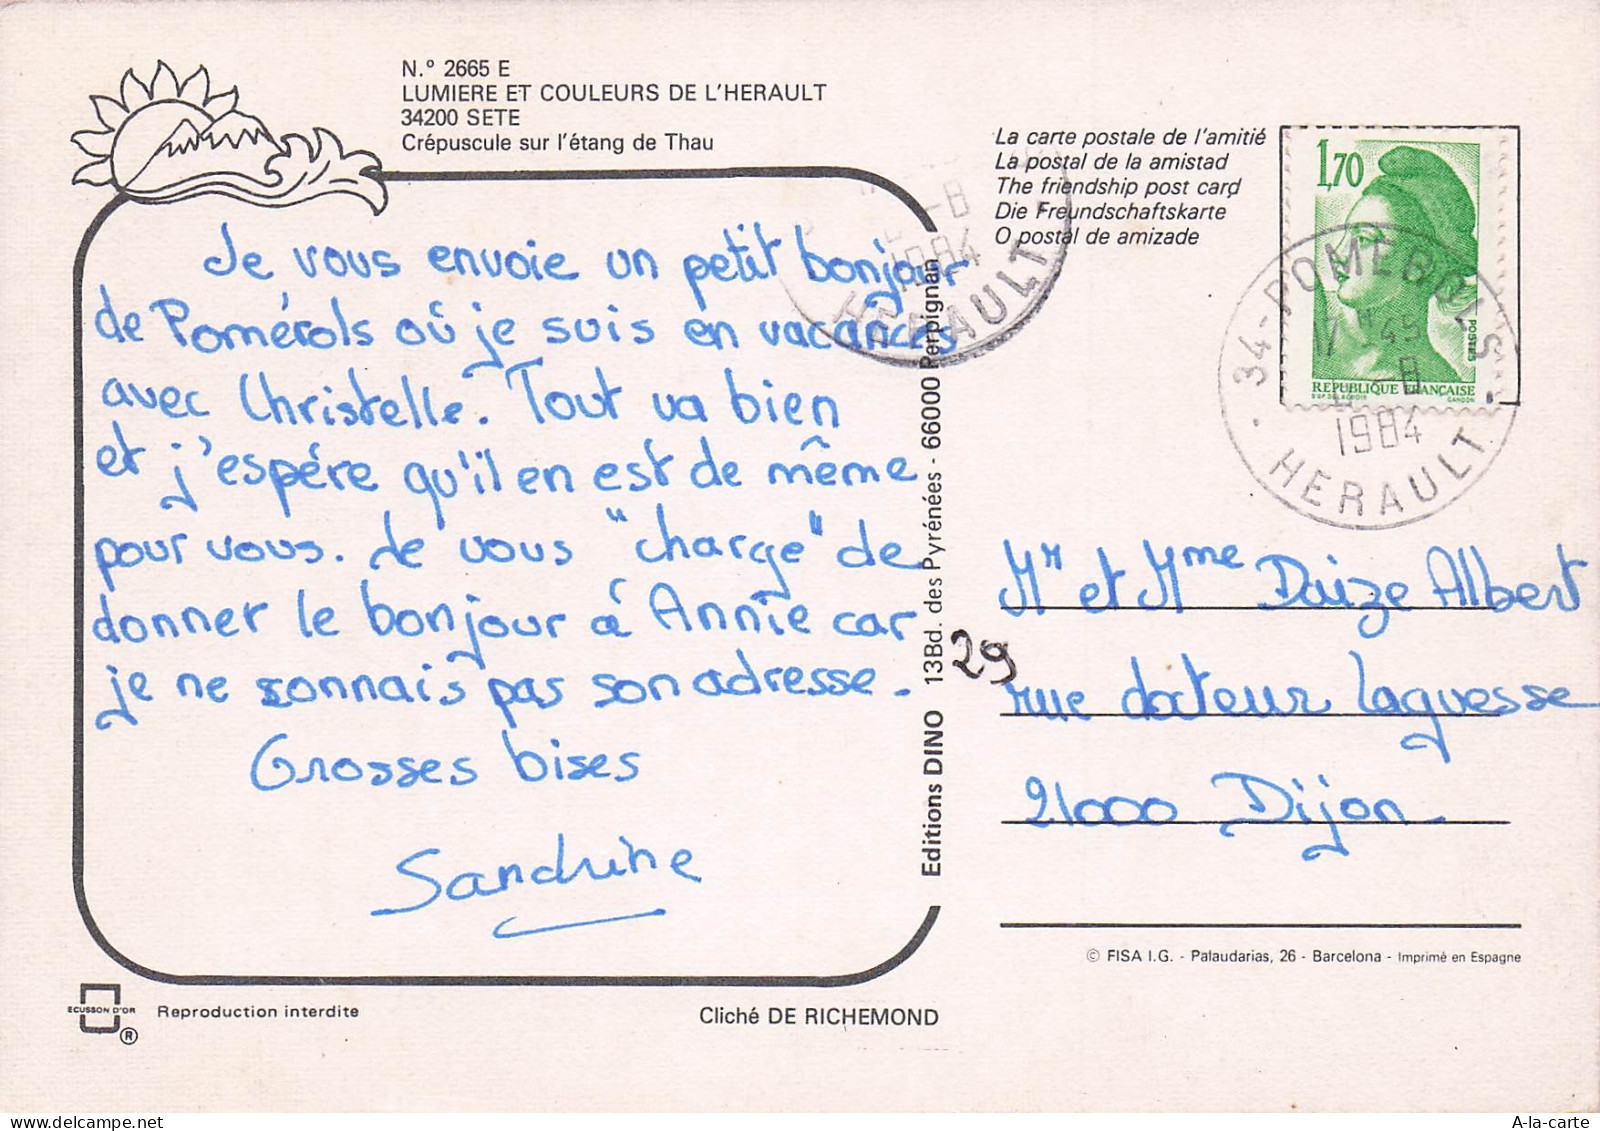 N.º 2665 E
LUMIERE ET COULEURS DE L'HERAULT
34200 SETE
Crépuscule sur l'étang de Thau
Je vous envoie un petit bonjour
de Pomérols où je suis en vacances
avec Christelle. Tout va bien
et j'espére qu'il en est de même
pour vous. Je vous "charge" de
donner le bonjour á Annie car
je ne connais pas son adresse.
Grosses bises
Sandrine
ECUSSON D'OR
®
Reproduction interdite
Cliché DE RICHEMOND
Editions DINO 13Bd. des Pyrénées - 66000 Perpignan
-8
1984
HERAULT
La carte postale de l'amitié
La postal de la amistad
The friendship post card
Die Freundschaftskarte
O postal de amizade
1,70
POSTES
REPUBLIQUE FRANÇAISE
D'AP. DELACROIX GANDON
34-POMEROLS
17 H 45
-8
1984
HERAULT
Mr et Mme Daize Albert
29 rue docteur Laguesse
21000 Dijon
© FISA I.G. - Palaudarias, 26 - Barcelona - Imprimé en Espagne
A-la-carte